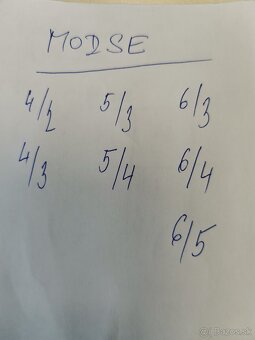 MODSE
4/2 5/3 6/3
4/3 5/4 6/4
6/5